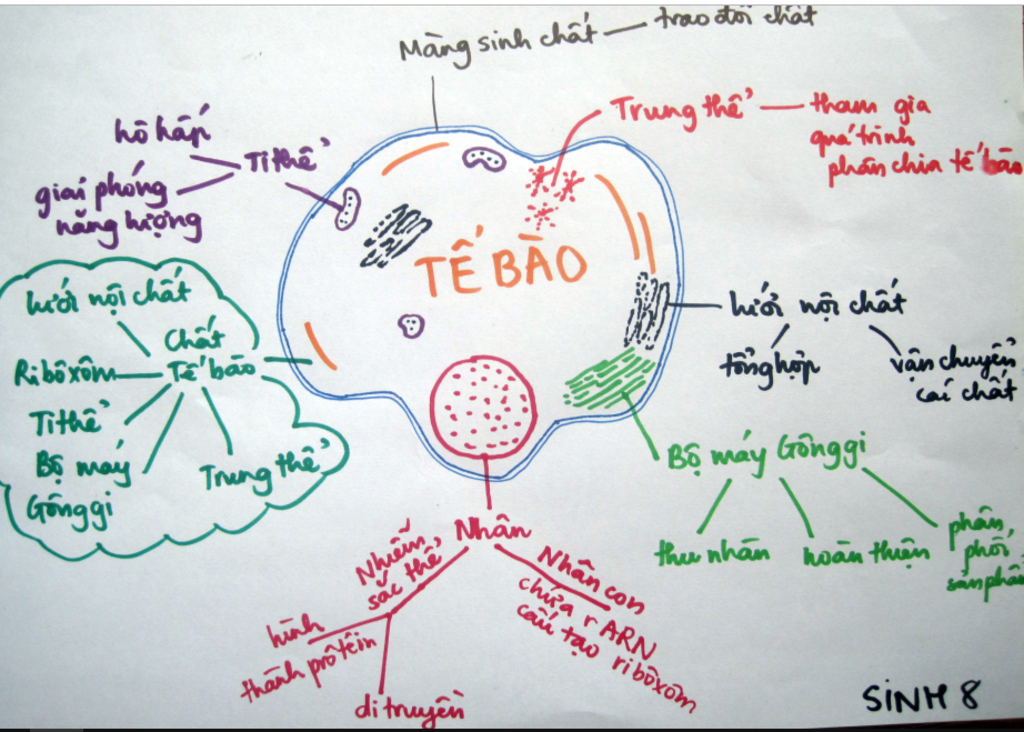 Màng sinh chất — trao đổi chất
Trung thể — tham gia
quá trình
phân chia tế bào
hô hấp
Ti thể
giải phóng
năng lượng
TẾ BÀO
lưới nội chất
Chất
Tế bào
Ribôxôm
Ti thể
Bộ máy
Gônggi
Trung thể
lưới nội chất
tổng hợp
vận chuyển
các chất
Bộ máy Gônggi
thu nhận
hoàn thiện
phân
phối
sản phẩm
Nhân
Nhiễm
sắc thể
hình
thành prôtêin
di truyền
Nhân con
chứa rARN
cấu tạo ribôxôm
SINH 8